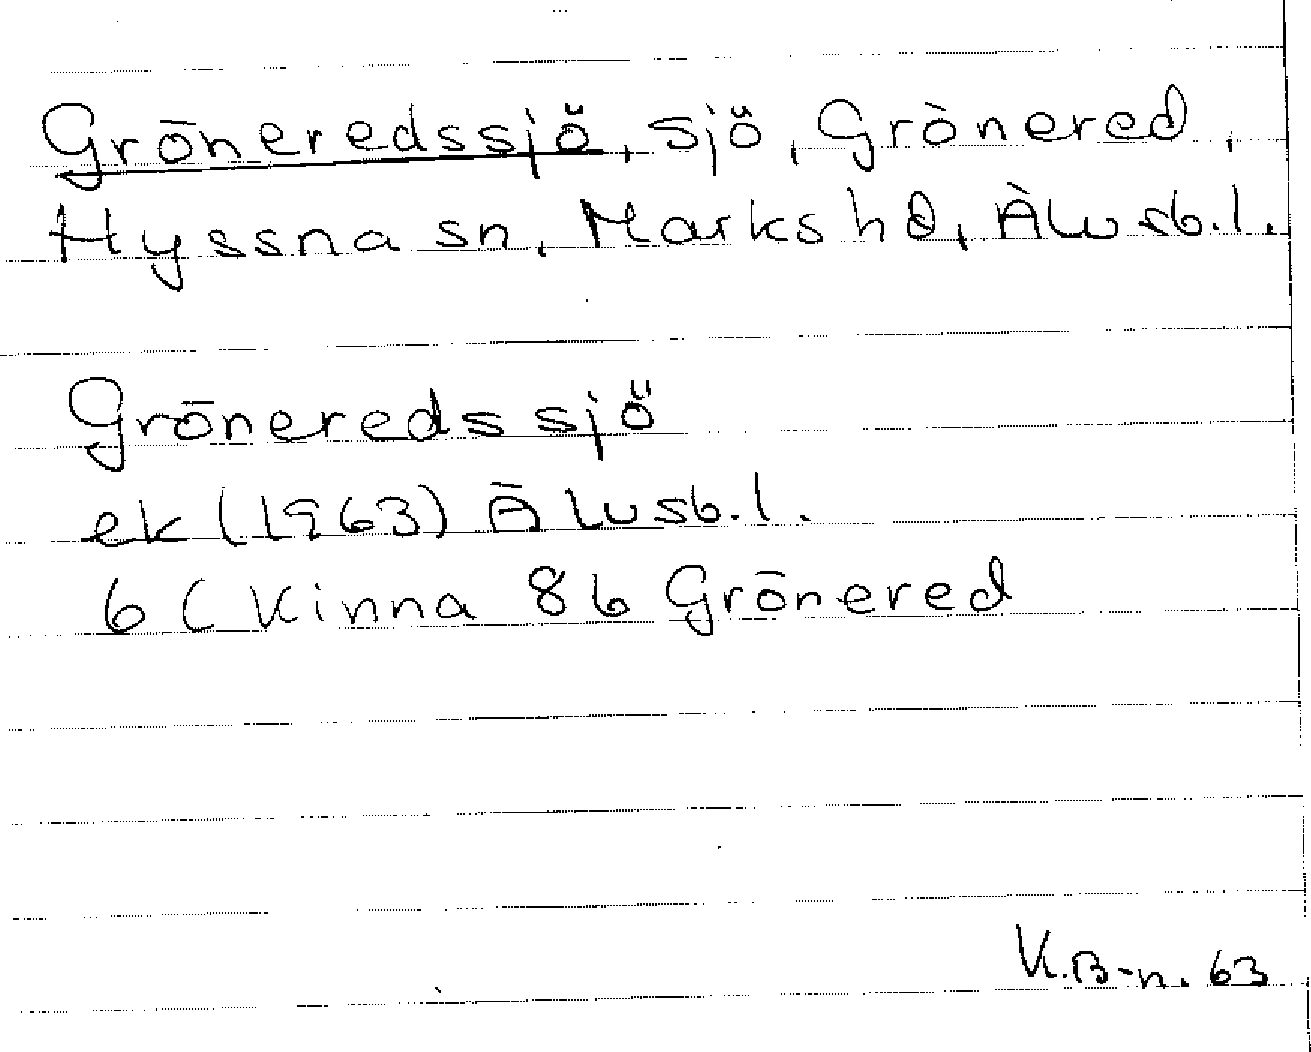 Gröneredssjö, sjö, Grönered,
Hyssna sn, Marks hd, Älvsb.l.
Gröneredssjö
ek (1963) Älvsb.l.
6 C Kinna 8b Grönered
K.B-n. 63